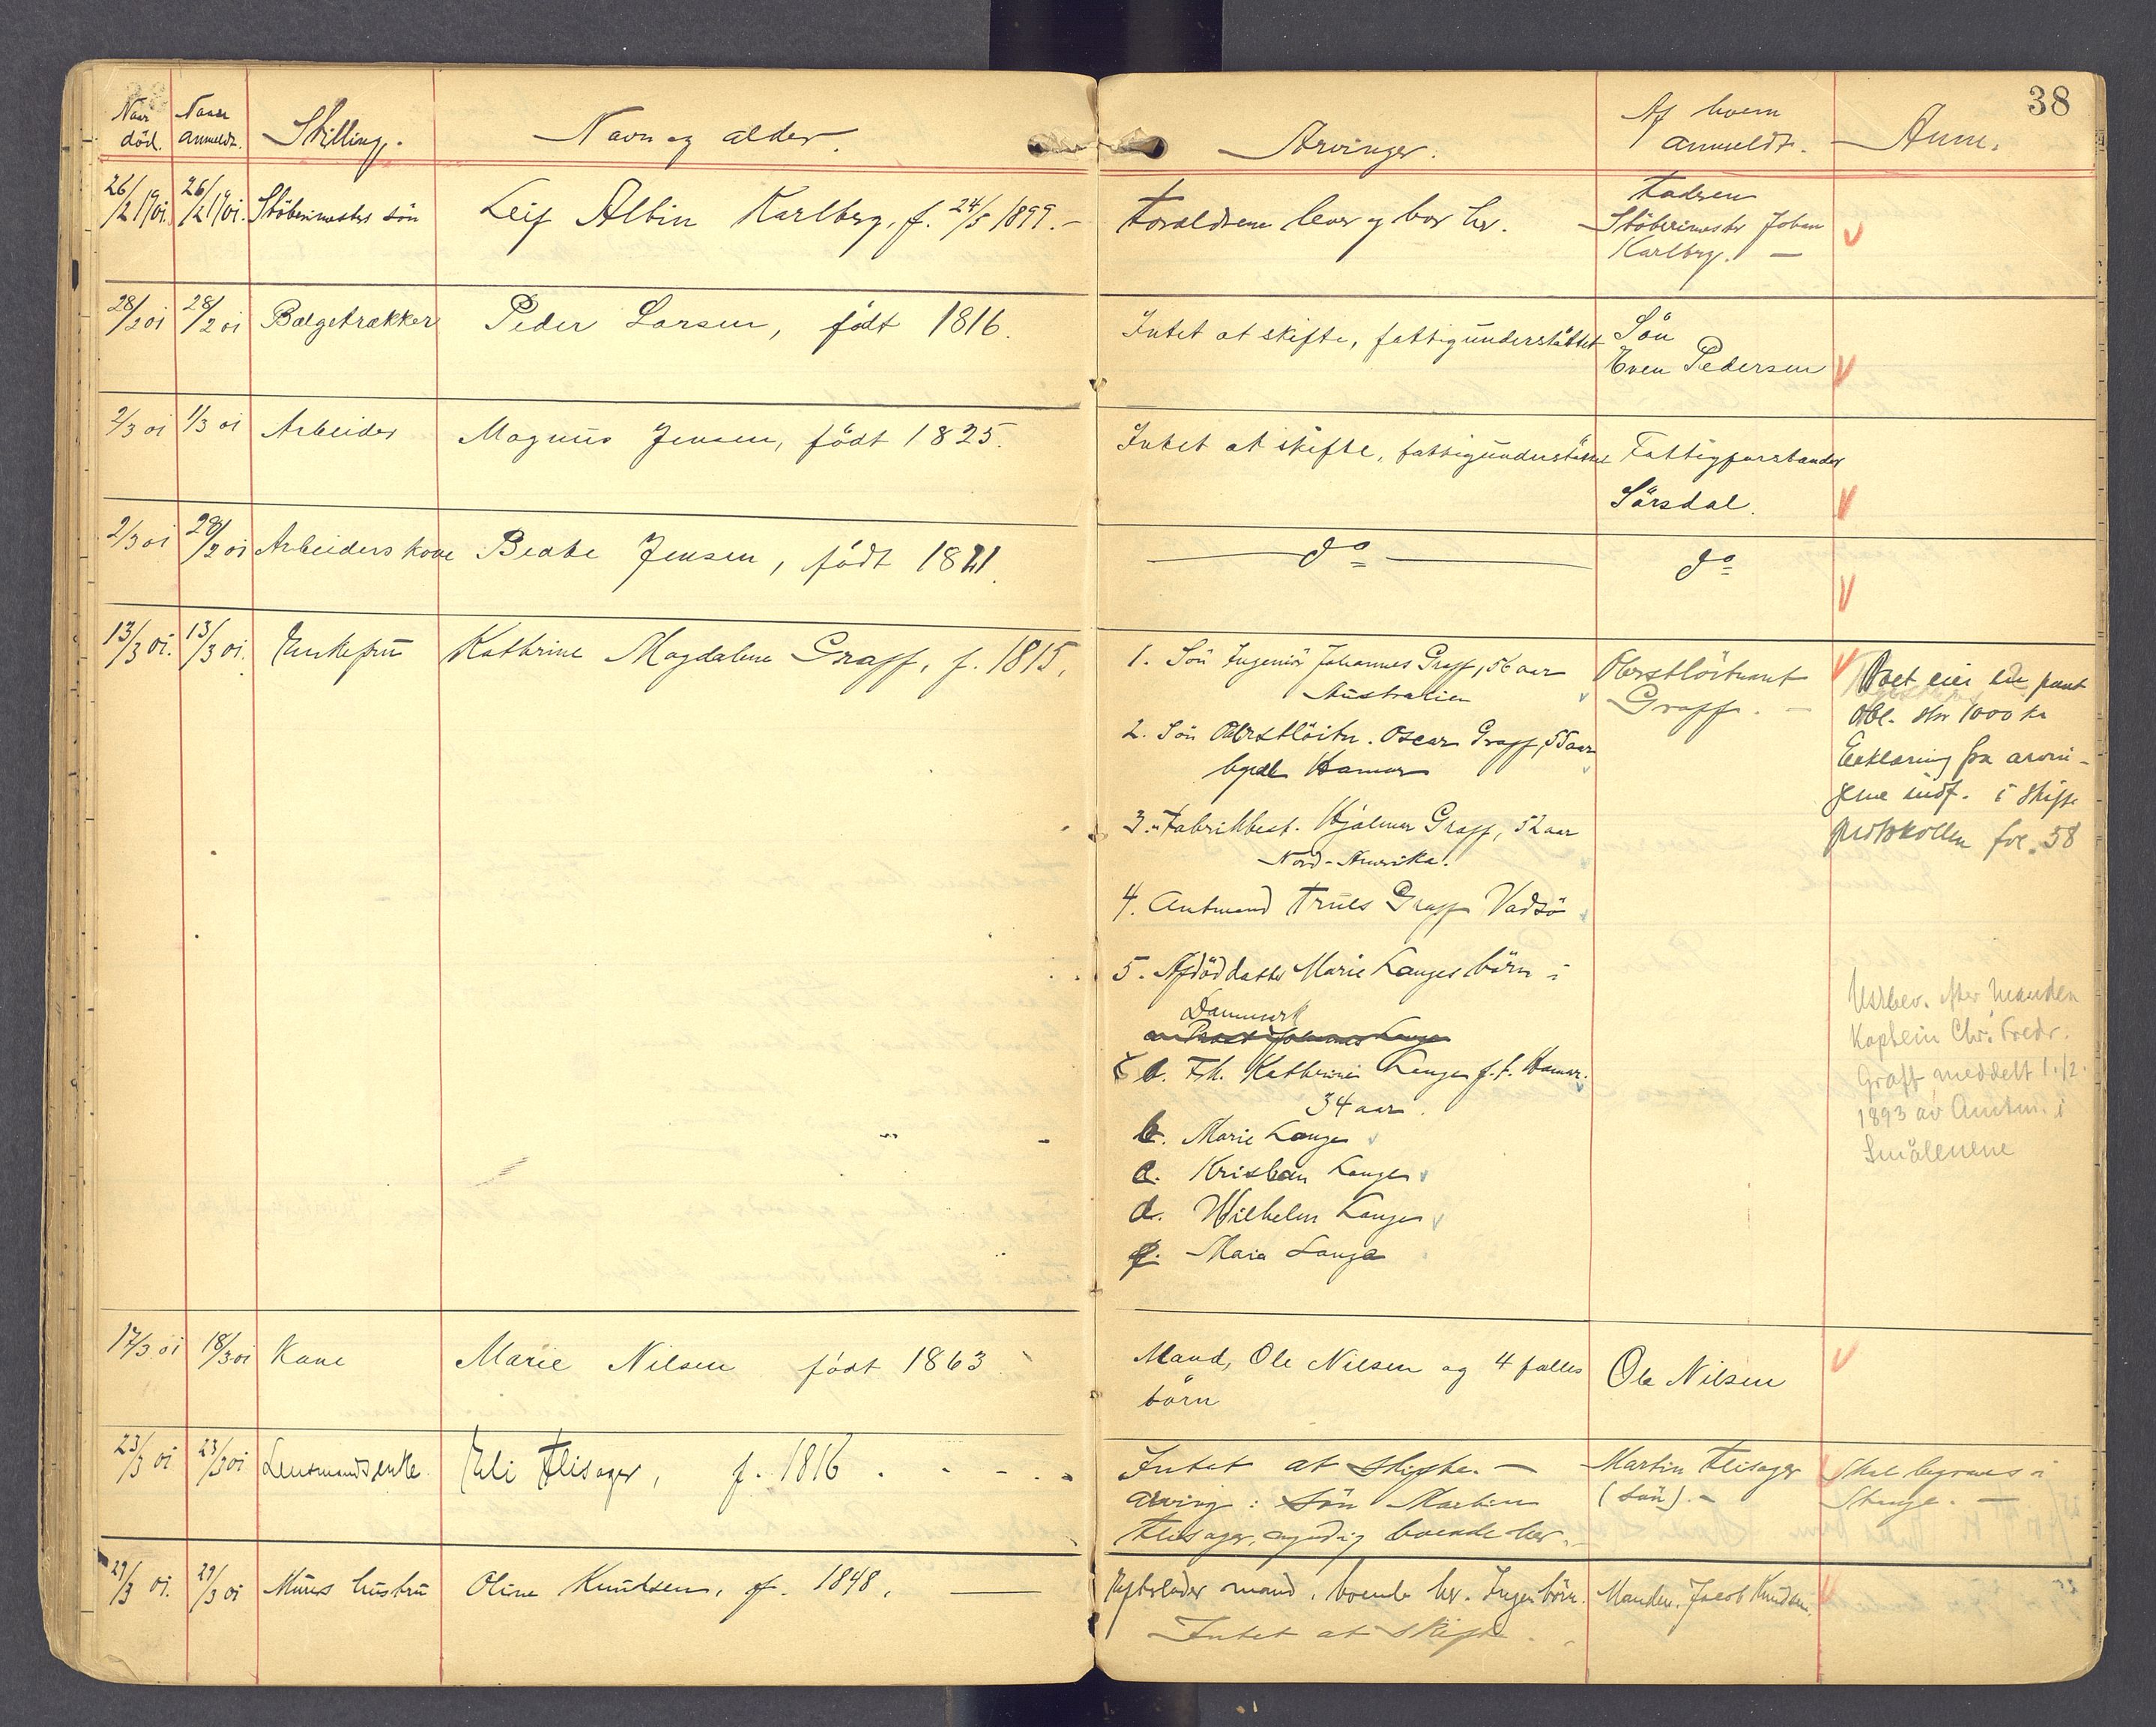 38
Naar død. Naar anmeldt. Stilling. Navn og alder. Arvinger. Af hvem anmeldt. Anm.
26/2 1901. 26/2 1901. Stöberimesters sön Leif Albin Karlberg, f. 24/5 1899. – Foraldrene lever og bor her. Faderen
Stöberimester Johan
Karlberg. –
28/2 01 28/2 01 Bælgetrækker Peder Larsen, født 1816. Intet at skifte, fattigunderstöttet Sön
Even Pedersen
2/3 01 1/3 01 Arbeider Magnus Jensen, født 1825. Intet at skifte, fattigunderstöttet Fattigforstander
Sörsdal.
2/3 01 28/2 01 Arbeiders kone Beate Jensen, født 1821. do do
13/3 01. 13/3 01. Enkefru Kathrine Magdalene Graff, f. 1815.
1. Sön Ingeniör Johannes Graff, 56 aar
Australien
2. Sön Oberstlöitn. Oscar Graff, 55 aar
Hamar
3. Fabrikbest. Hjalmar Graff, 52 aar
Nord-Amerika.
4. Amtmand Truls Graff Vadsö
5. Afdöd datter Marie Langes börn i
Danmark
a. Frk. Kathrine Lange f.t. Hamar.
34 aar.
b. Marie Lange
c. Kristian Lange
d. Wilhelm Lange
Maia Lange
Oberstlöitnant
Graff. –
Boet eier en pant
obl. stor 1000 kr
Erklæring fra arvin-
gene indf. i skifte
protokollen fol. 58
Uskbev. efter manden
Kaptein Chr. Fredr.
Graff meddelt 1./2.
1893 av Amtm. i
Smålenene
17/3 01 18/3 01 Kone Marie Nilsen født 1863 Mand, Ole Nilsen og 4 fælles
börn
Ole Nilsen
23/3 01 23/3 01 Lensmandsenke Eli Flisager, f. 1816. Intet at skifte. –
Arving: Sön Martin
Flisager, myndig boende her.
Martin Flisager
(sön). –
Skal begraves i
Stange. –
29/3 01. 29/3 01 Murers hustru Oline Knudsen, f. 1848. Efterlader mand, boende her. Ingen börn.
Intet at skifte.
Manden, Jacob Knudsen.